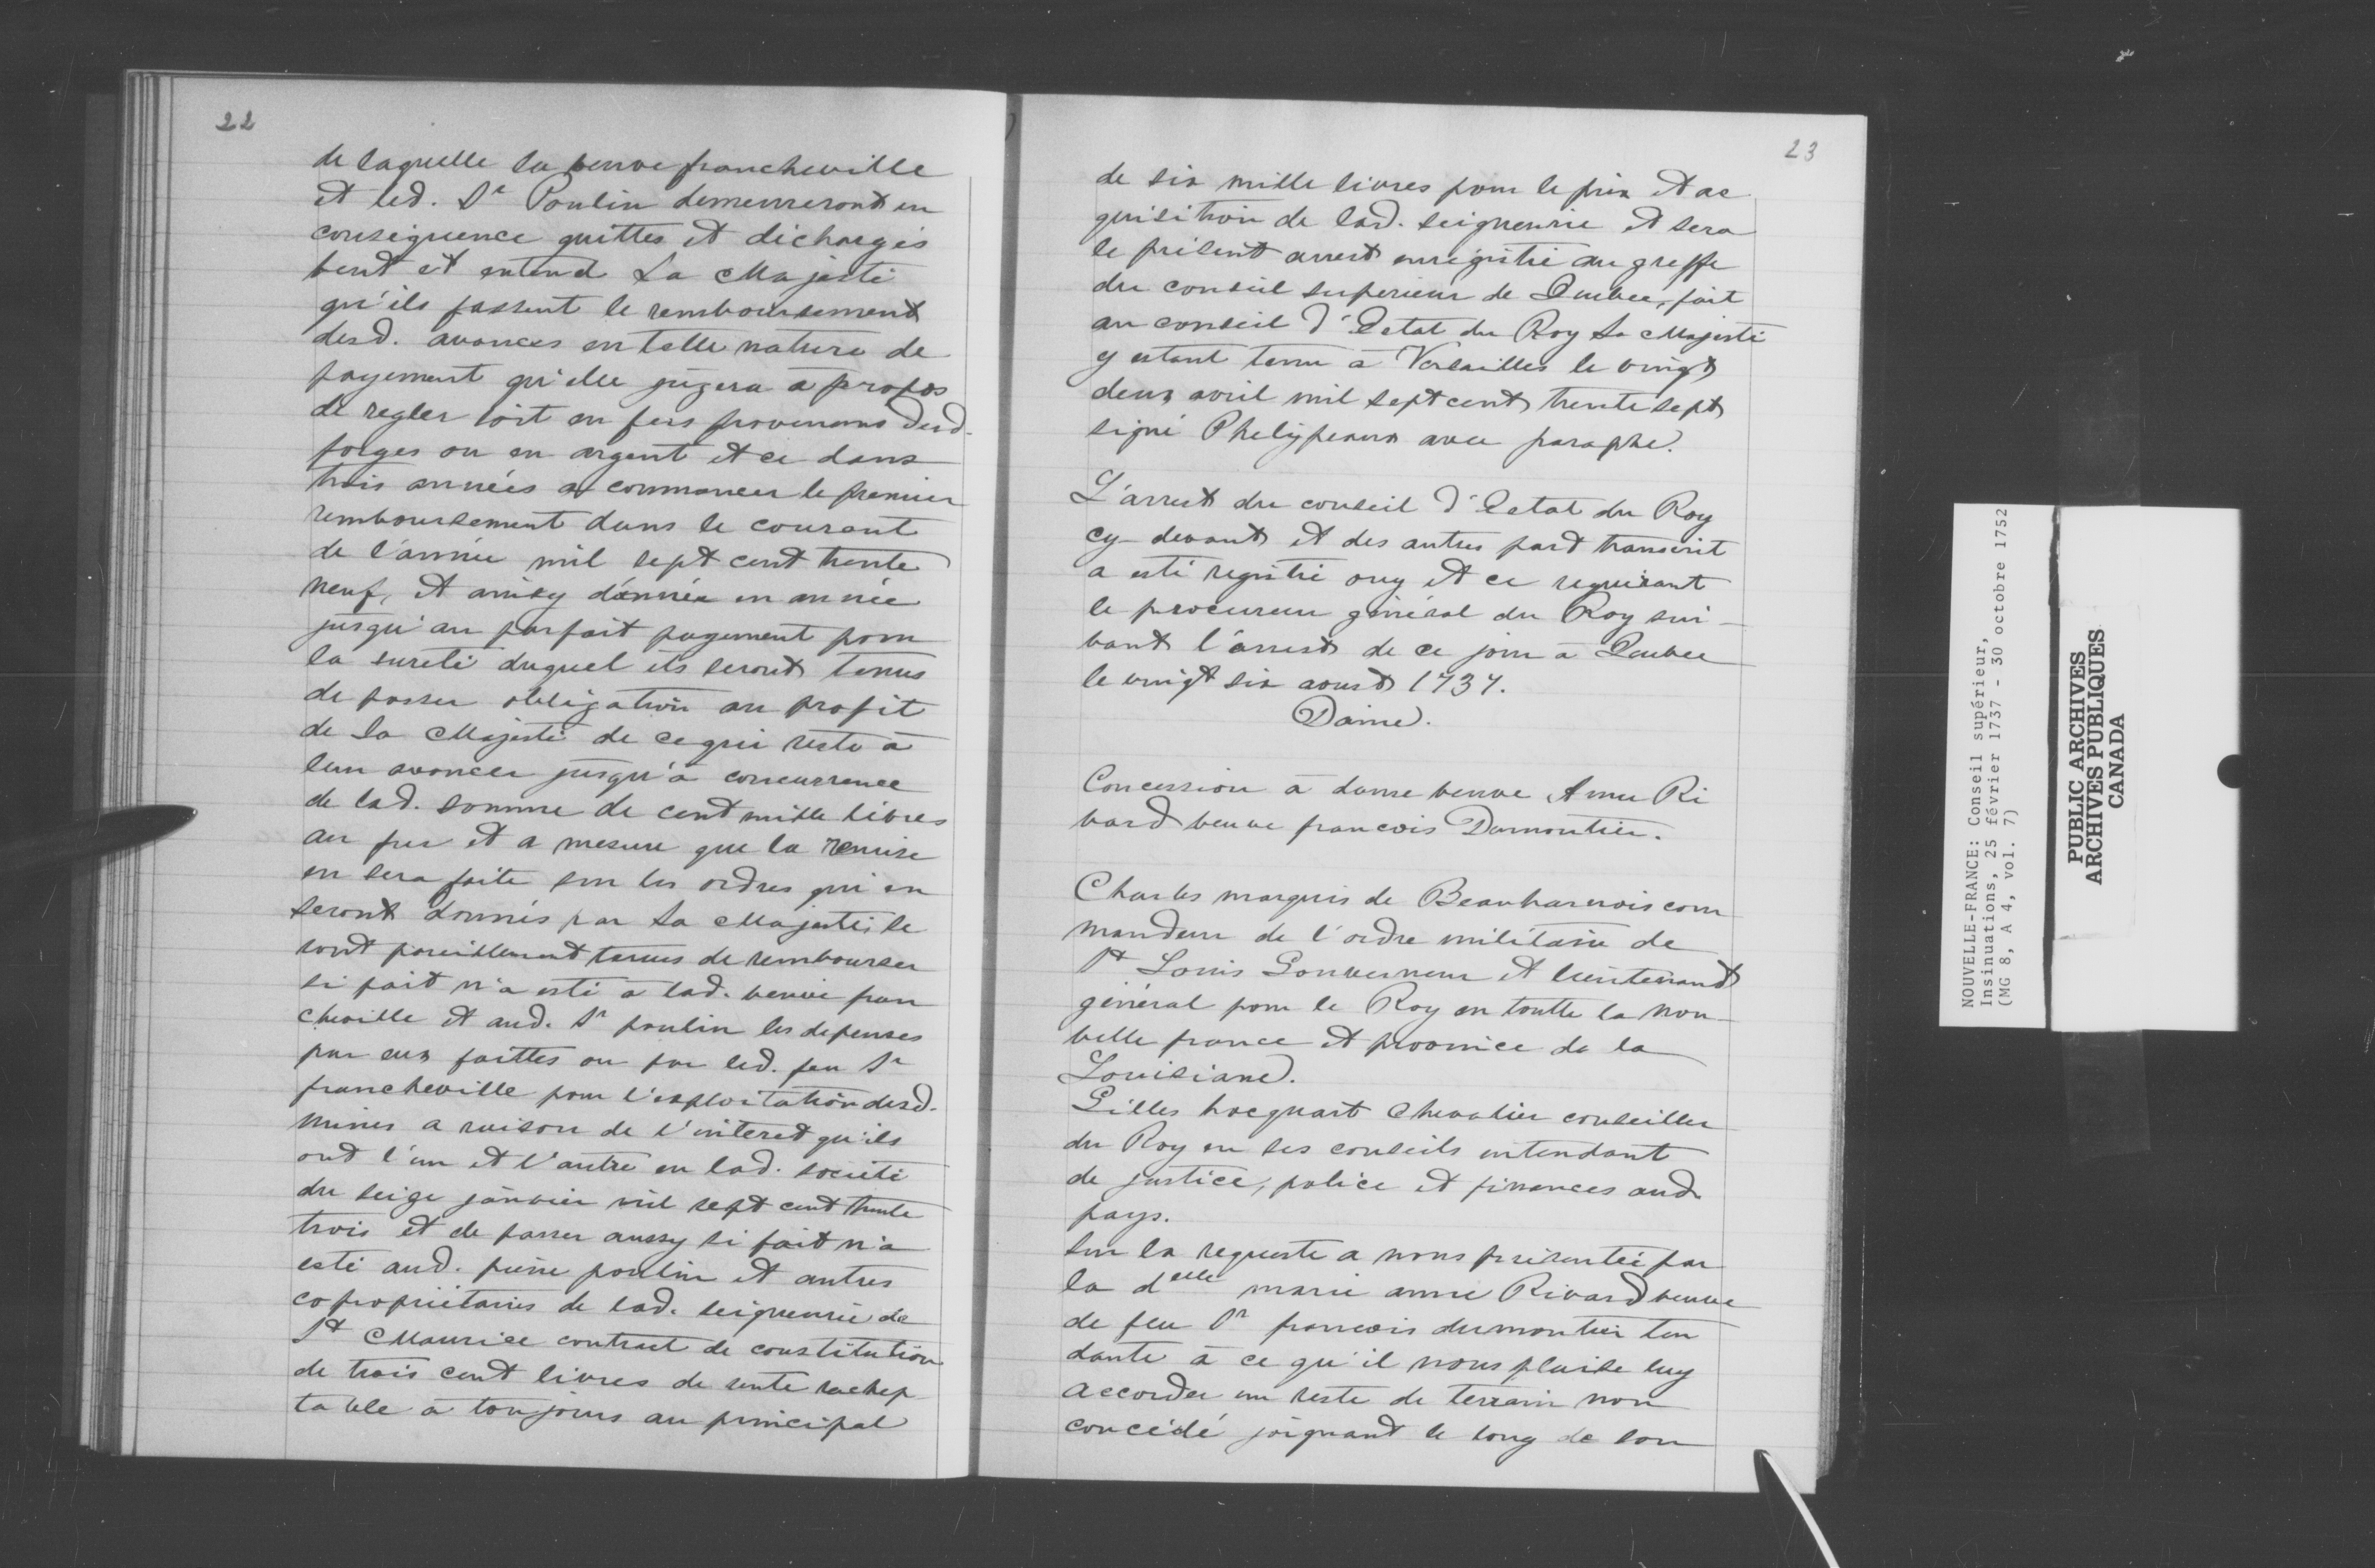 22
de laquelle la veuve francheville
et led. Sr Poulin demeureront en
consequence quittes et déchargés
veut et entend Sa Majesté
qu'ils fassent le remboursement
desd. avances en telle nature de
payement qu'elle jugera à propos
de regler soit en fers provenans desd.
forges ou en argent et ce dans
trois années a commancer le premier
remboursement dans le courant
de l'année mil sept cent trente
neuf, et ainsy d'année en année
jusqu'au parfait payement pour
la sureté duquel ils seront tenus
de passer obligation au profit
de Sa Majesté de ce qui reste à
leur avancer jusqu'à concurrence
de lad. somme de cent mille livres
au fur et a mesure que la remise
en sera faite sur les ordres qui en
seront donnés par Sa Majesté, se
sont pareillement tenus de rembourser
si fait n'a esté à lad. veuve fran
cheville et aud. Sr poulin les depenses
par eux faittes ou par led. feu Sr
francheville pour l'exploitation desd.
mines a raison de l'interet qu'ils
ont l'un et l'autre en lad. société
du seize janvier mil sept cent trente
trois et de passer aussy si fait n'a
esté aud. pierre poulin et autres
copropriétaires de lad. seigneurie de
St Maurice contract de constitution
de trois cent livres de rente rachep
table à toujours au principal
23
de six mille livres pour le prix et ac
quisition de lad. seigneurie et sera
le présent arrest enregistré au greffe
du conseil superieur de Quebec, fait
au conseil d'Estat du Roy Sa Majesté
y estant tenu à Versailles le vingt
deux avril mil sept cent trente sept
signé Phelypeaux avec paraphe.
L'arrest du conseil d'Estat du Roy
cy-devant et des autres part transcrit
a esté registré ouy et ce requerant
le procureur général du Roy sui-
vant l'arrest de ce jour à Quebec
le vingt six aoust 1737.
Daine.
Concession à dame veuve Anne Ri
vard veuve francois Dumontier.
Charles marquis de Beauharnois com
mandeur de l'ordre militaire de
St Louis Gouverneur et lieutenant
général pour le Roy en toutte la nou-
velle france et province de la
Louisiane.
Gilles hocquart Chevalier conseiller
du Roy en ses conseils intendant
de justice, police et finances aud.
pays.
Sur la requeste a nous présentée par
la delle marie anne Rivard veuve
de feu Sr francois dumontier ten
dante à ce qu'il nous plaise luy
accorder un reste de terrain non
concédé joignant le long de son
NOUVELLE-FRANCE: Conseil supérieur,
Insinuations, 25 février 1737 - 30 octobre 1752
(MG 8, A 4, vol. 7)
PUBLIC ARCHIVES
ARCHIVES PUBLIQUES
CANADA